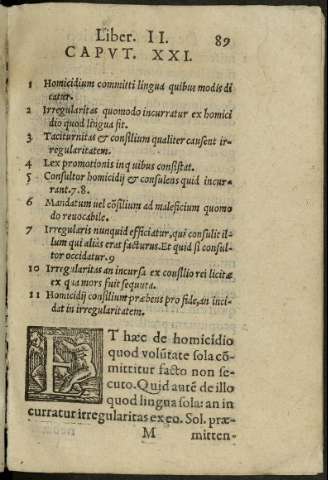 Liber. II. 89
CAPVT. XXI.
1 Homicidium committi lingua quibus modis di
catur.
2 Irregularitas quomodo incurratur ex homici
dio quod lingua fit.
3 Taciturnitas & consilium qualiter causent ir-
regularitatem.
4 Lex promotionis in quibus consistat.
5 Consultor homicidij & consulens quid incur-
rant.7.8.
6 Mandatum uel cõsilium ad maleficium quomo
do reuocabile.
7 Irregularis nunquid efficiatur, qui consulit il-
lum qui aliàs erat facturus. Et quid si consul-
tor occidatur.9
10 Irregularitas an incursa ex consilio rei licitæ
ex qua mors fuit sequuta.
11 Homicidij consilium præbens pro fide, an inci-
dat in irregularitatem.
ET hæc de homicidio
quod volũtate sola cõ-
mittitur facto non se-
cuto. Quid autẽ de illo
quod lingua sola: an in
curratur irregularitas ex eo. Sol. præ-
M mitten-